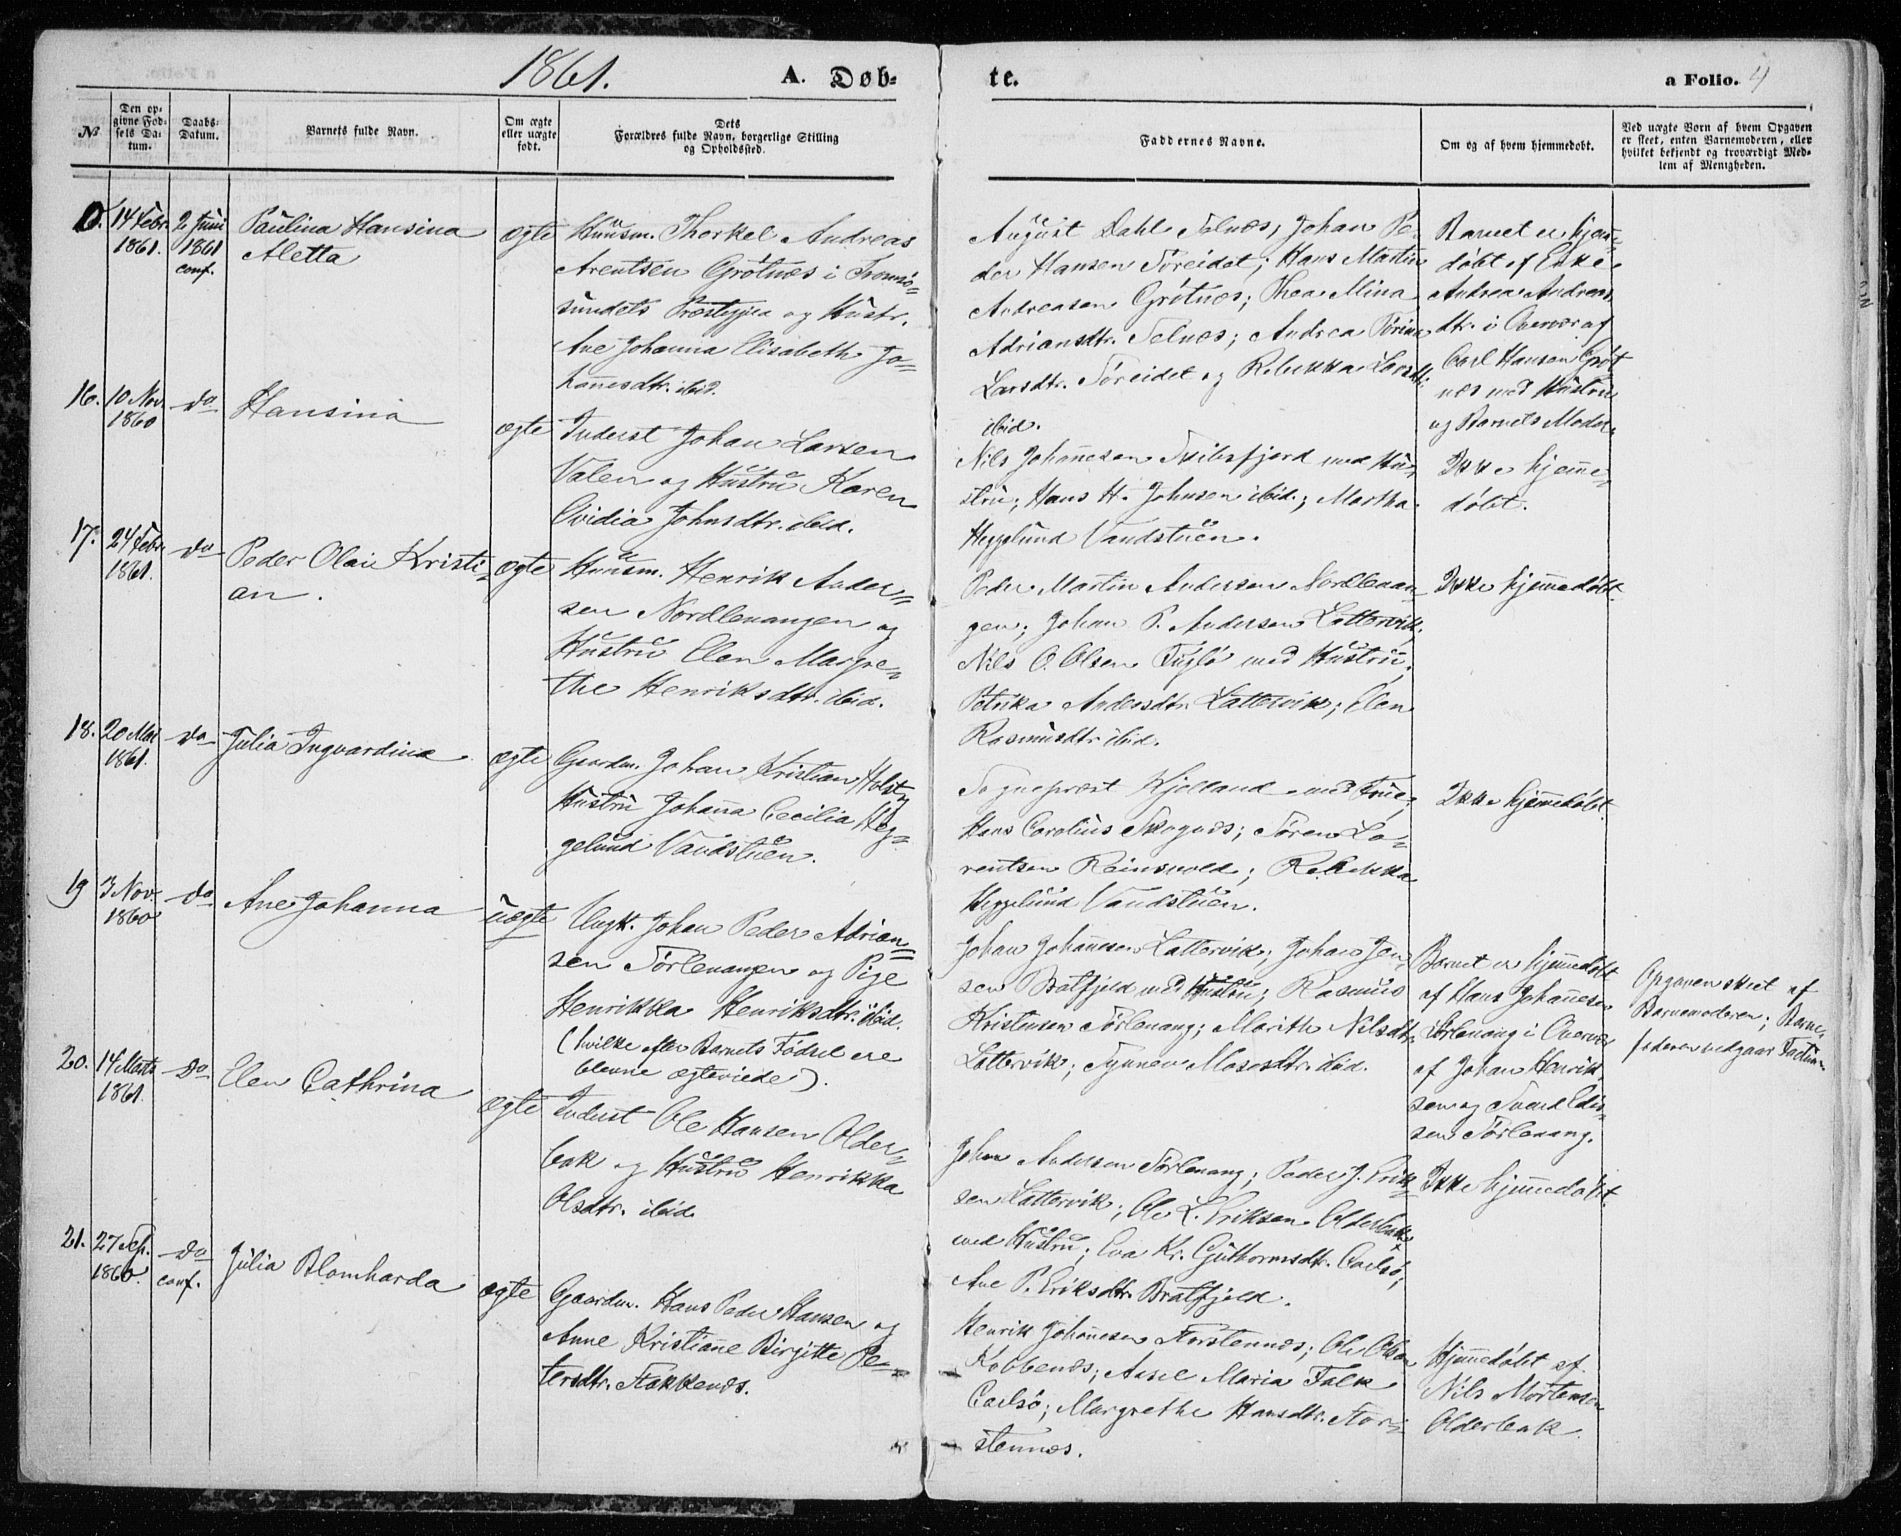 1861.
A. Døb-
te.
a Folio. 4
№
Den op-
givne Fød-
sels Da-
tum.
Daabs-
Datum.
Barnets fulde Navn.
Om ægte
eller uægte
født.
Dets
Forældres fulde Navn, borgerlige Stilling
og Opholdssted.
Faddernes Navne.
Om og af hvem hjemmedøbt.
Ved uægte Børn af hvem Opgaven
er skeet, enten Barnemoderen, eller
hvilket bekjendt og troværdigt Med-
lem af Menigheden.
14 Febr.
1861.
2 Juni
1861
conf.
Paulina Hansina
Aletta
ægte
Huusm. Thorkel Andreas
Arentsen Grötnæs i Tromsö=
sundets Præstegjeld og Hustr.
Ane Johanna Elisabeth Jo=
hannesdtr. ibid.
August Dahl Selnæs; Johan Pe-
der Hansen Söreidet; Hans Martin
Andreasen Grötnæs; Thea Mina
Adriansdtr. Selnæs; Andrea Sörina
Larsdtr. Söreidet og Rebekka Larsdtr.
ibid.
Barnet er hjem-
döbt af Enke
Andrea Andreas
dtr. i Overvær af
Carl Hansen Gröt
næs med Hustru
og Barnets Moder.
16.
10 Nov.
1860
do
Hansina
ægte
Inderst Johan Larsen
Valen og Hustru Karen
Ovidia Johnsdtr. ibid.
Nils Johannesen Skibsfjord med Hu-
stru; Hans H. Johnsen ibid.; Martha
Heggelund Vandstuen.
Ikke hjemme-
döbt.
17.
24 Febr.
1861.
do
Peder Olai Kristi-
an.
ægte
Huusm. Henrik Ander=
sen Nordlenangen og
Hustru Elen Margre-
the Henriksdtr. ibid.
Peder Martin Andersen Nordlenan-
gen; Johan P. Andersen Lattervik;
Nils O. Olsen Fuglö med Hustru;
Petrika Andersdtr. Lattervik; Elen
Rasmusdtr. ibid.
Ikke hjemmedöbt.
18.
20 Mai
1861.
do
Julia Ingvardina
ægte
Gaardm. Johan Kristian Holst og
Hustru Johanna Cecilia Heg-
gelund Vandstuen.
Sognepræst Kjelland med Frue;
Hans Carolius Skognæs; Sören Lo-
rentsen Reinsvold; Rebekka
Heggelund Vandstuen.
Ikke hjemmedöbt.
19
3 Nov.
1860
do
Ane Johanna
uægte
Ungk. Johan Peder Adrian=
sen Sörlenangen og Pige
Henrikka Henriksdtr. ibid.
(hvilke efter Barnets Födsel ere
blevne ægteviede).
Johan Johannesen Lattervik; Johan Jen-
sen Bratfjeld med Hustru; Rasmus
Kristensen Sörlenang; Marith Nilsdtr.
Lattervik; Synnev Mosesdtr. ibid.
Barnet er hjemmedöbt
af Hans Johannesen
Sörlenang i Overvær
af Johan Henrik-
sen og Svend
sen Sörlenang.
Opgaven skeet af
Barnemoderen; Barne-
faderen vedgaar
20.
14 Marts
1861.
do
Elen Cathrina
ægte
Inderst Ole Hansen Older-
bak og Hustru Henrikka
Olsdtr. ibid
Johan Andersen Sörlenang; Peder J. Erik-
sen Lattervik; Ole L. Eriksen Olderbak
med Hustru; Eva Kr. Guthormsdtr. Carlsö;
Ane P. Eriksdtr. Bratfjeld.
Ikke hjemmedöbt.
21.
27 Sep.
1860.
do
conf.
Julia Blomharda
ægte
Gaardm. Hans Peder Hansen og
Anne Kristianne Birgitte Pe-
tersdtr. Stakkenæs.
Henrik Johannesen Storstennæs; Ole Olsen
Kobbenæs; Axsel Maria Falk
Carlsö; Margrethe Hansdtr. Stor-
stennæs.
Hjemmedöbt af
Nils Mortensen
Olderbak.